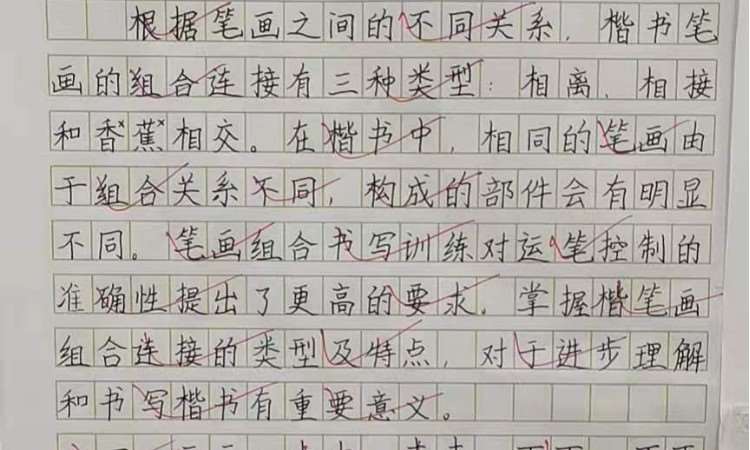 根据笔画之间的不同关系，楷书笔
画的组合连接有三种类型：相离、相接
和香蕉相交。在楷书中，相同的笔画由
于组合关系不同，构成的部件会有明显
不同。笔画组合书写训练对运笔控制的
准确性提出了更高的要求，掌握楷笔画
组合连接的类型及特点，对于进步理解
和书写楷书有重要意义。